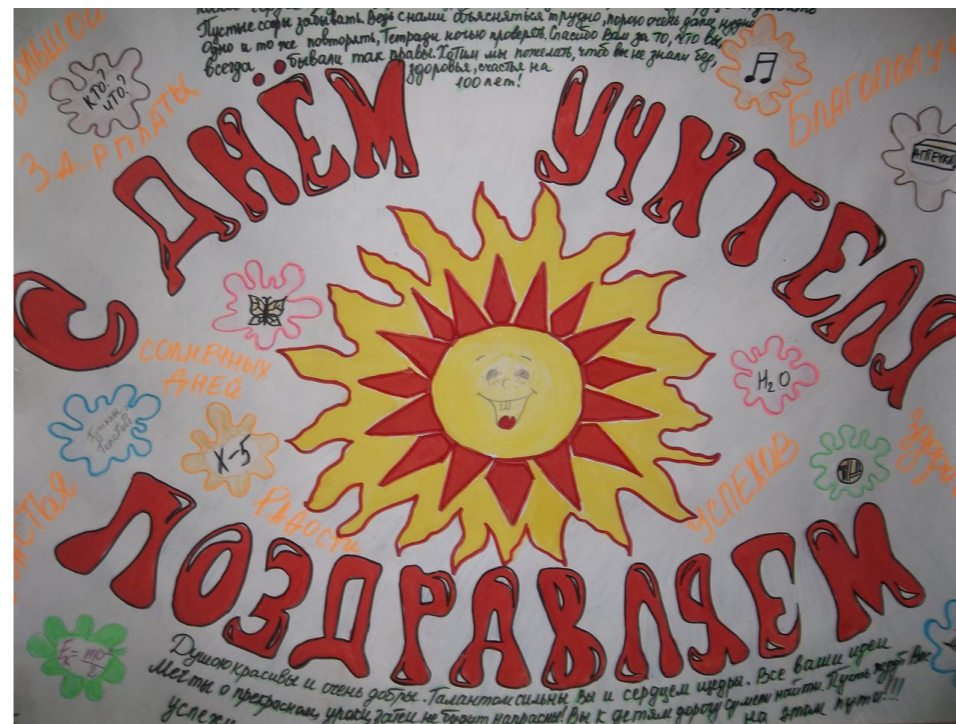 Пустые соры забывать. Ведь с нами объясняться трудно, порою очень даже нудно
Одно и то же повторять, Тетради ночью проверять. Спасибо Вам за то, что вы
всегда бывали так правы. Хотим мы пожелать, чтоб вы не знали бед,
здоровья, счастья на
100 лет!
БОЛЬШОЙ
ЗАРПЛАТЫ
КТО?
ЧТО?
БЛАГОПОЛУЧ
АПТЕЧКА
С ДНЁМ УЧИТЕЛЯ
СОЛНЕЧНЫХ
ДНЕЙ
H₂O
Пушкин
Толстой
X-5
РАДОСТИ
УСПЕХОВ
ЗДОРО
СТЬЯ
ПОЗДРАВЛЯЕМ
Eк=mv/2
Душою красивы и очень добры. Талантом сильны Вы и сердцем щедры. Все ваши идеи
Мечты о прекрасном, уроки, затеи не будут напрасны! Вы к детям дорогу сумели найти. Пусть ждут Вас
успехи на этом пути!!!